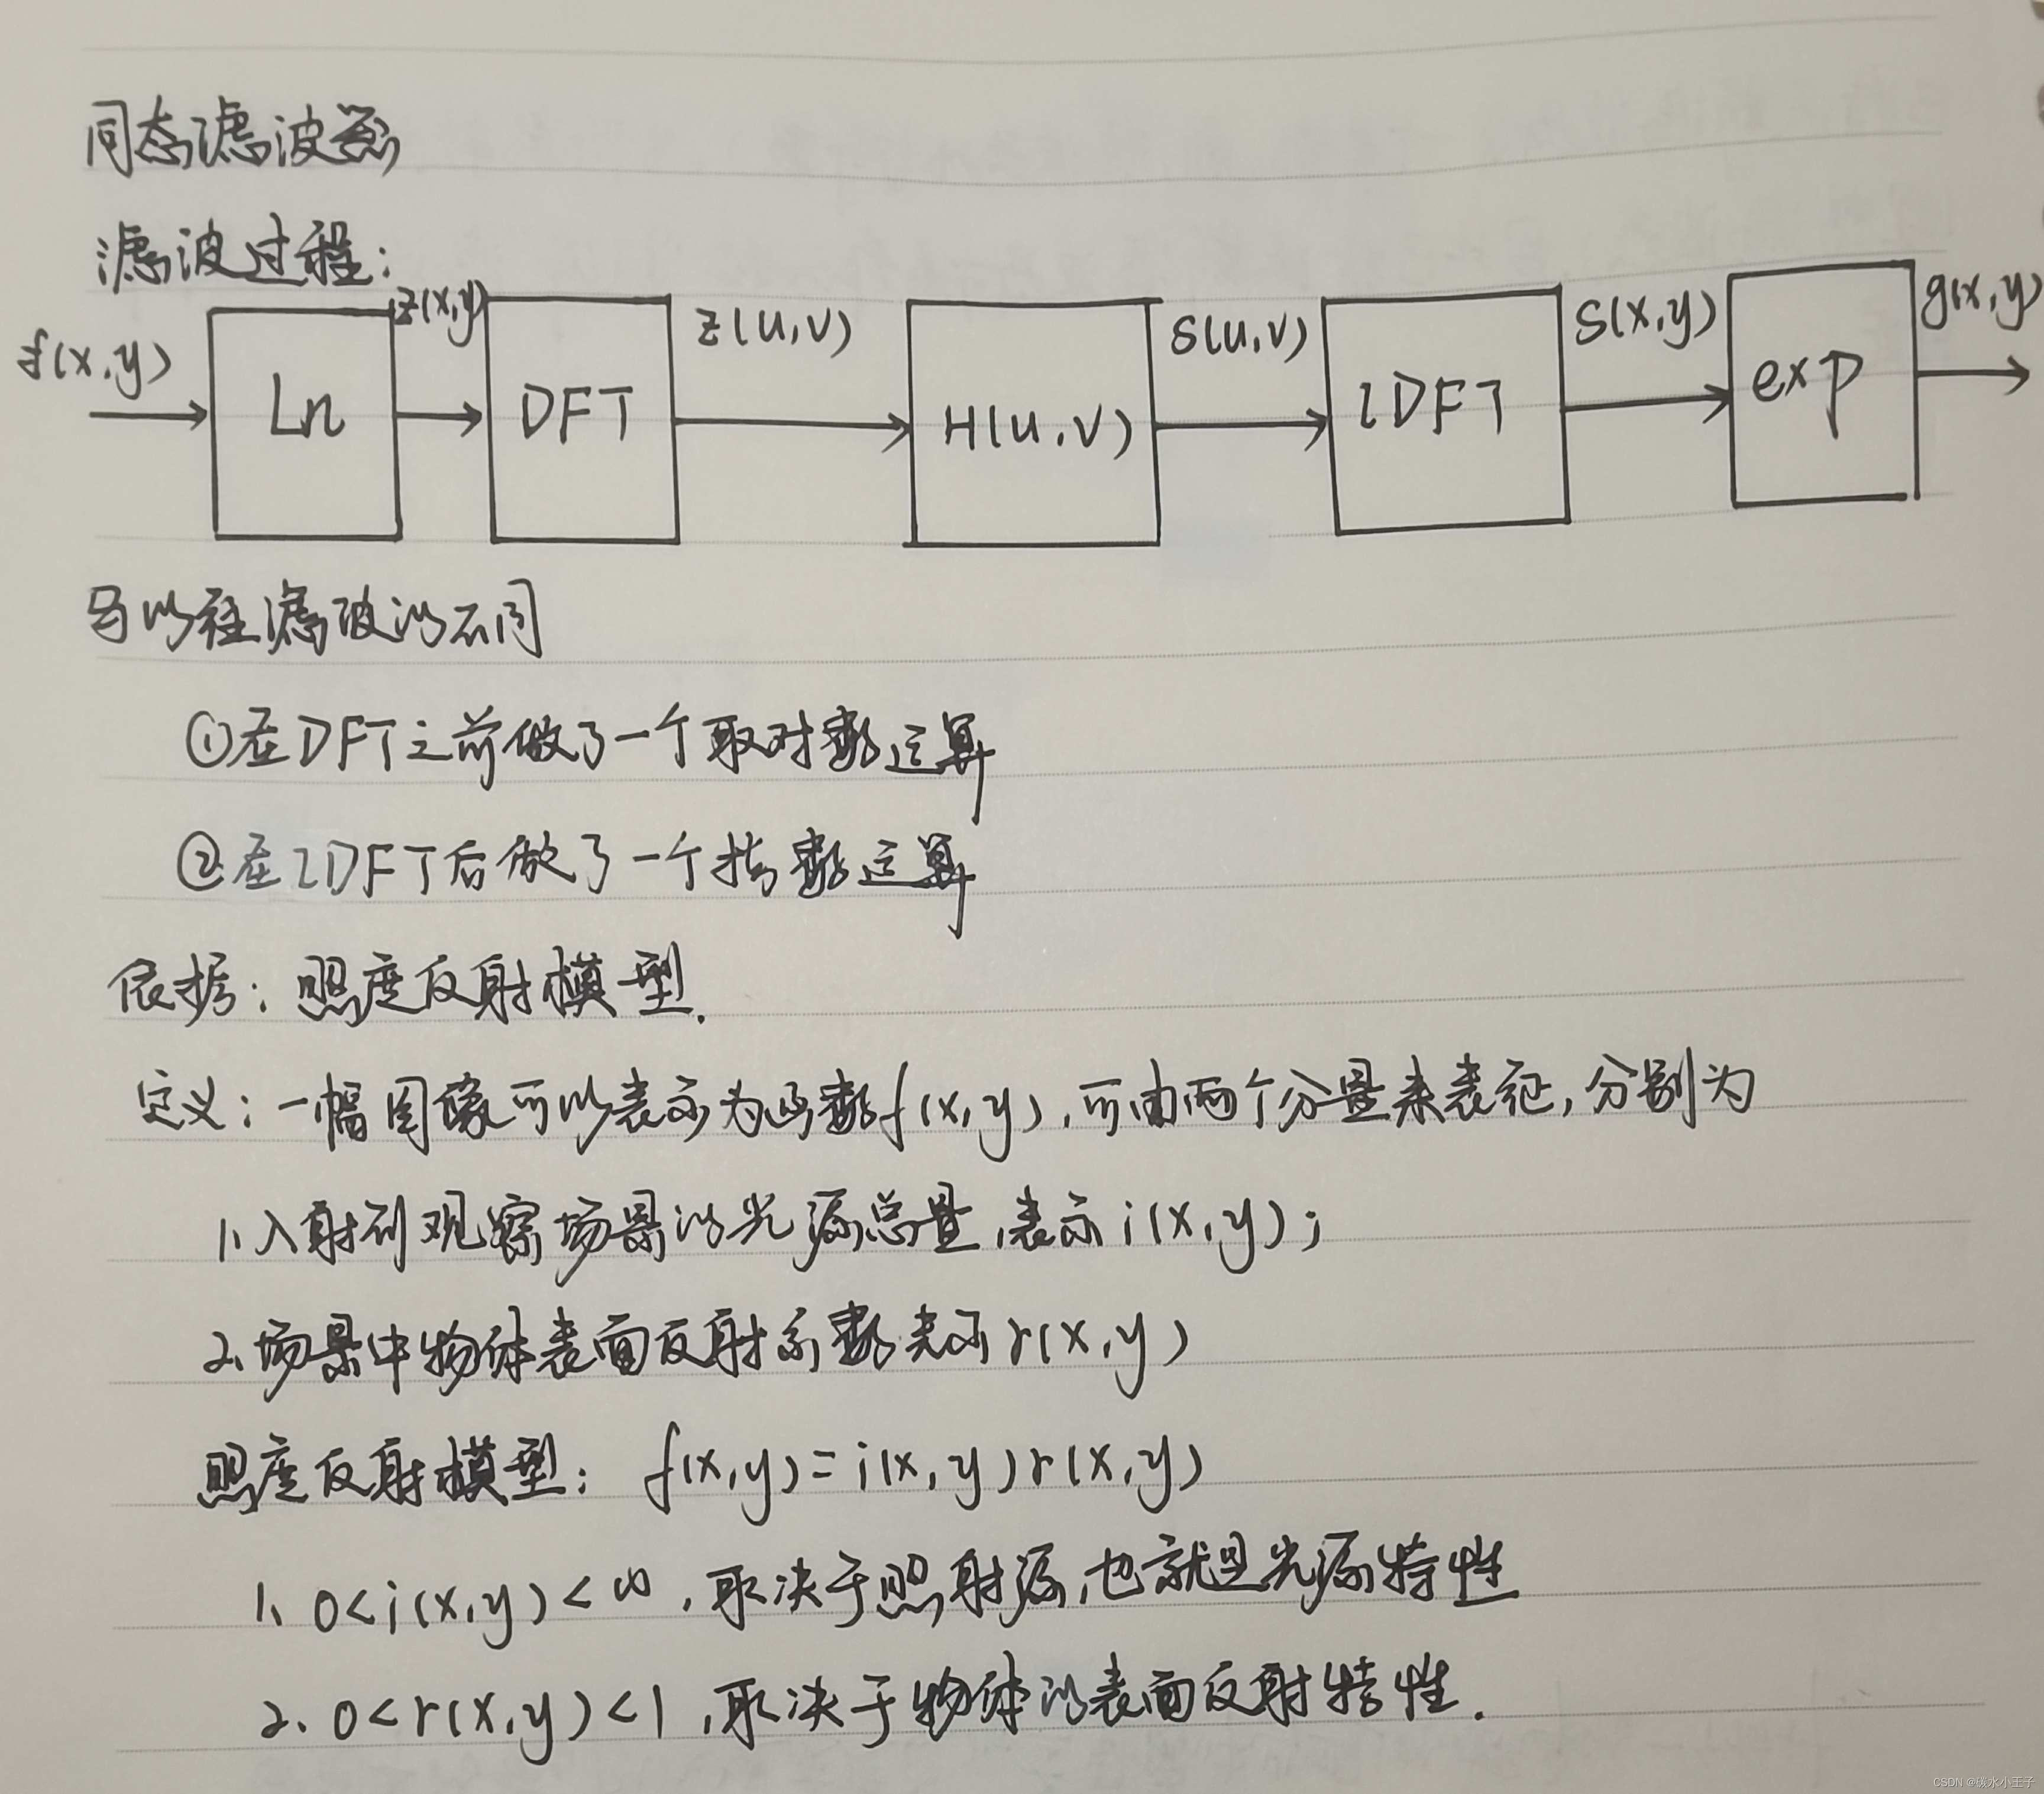 同态滤波器
滤波过程:
f(x,y) Ln z(x,y) DFT z(u,v) H(u,v) S(u,v) IDFT S(x,y) exp g(x,y)
与以往滤波的不同
①在DFT之前做了一个取对数运算
②在IDFT后做了一个指数运算
依据:照度反射模型.
定义:一幅图像可以表示为函数f(x,y),可由两个分量来表征,分别为
1.入射到观察场景的光源总量,表示i(x,y);
2.场景中物体表面反射系数表示r(x,y)
照度反射模型: f(x,y)=i(x,y)r(x,y)
1、0<i(x,y)<∞,取决于照射源,也就是光源特性
2、0<r(x,y)<1,取决于物体的表面反射特性.
CSDN @碳水小王子